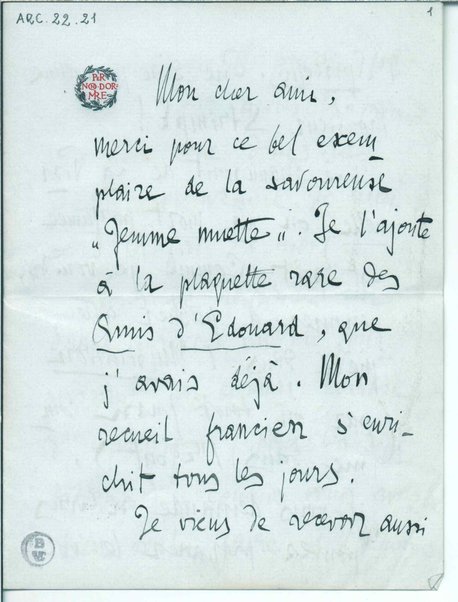 ARC. 22.21
1
PER
NON DOR-
MIRE
Mon cher ami,
merci pour ce bel exem
plaire de la savoureuse
"Femme muette". Je l'ajoute
à la plaquette rare des
Amis d'Edouard, que
j'avais déjà. Mon
recueil francien s'enri-
chit tous les jours.
Je viens de recevoir aussi